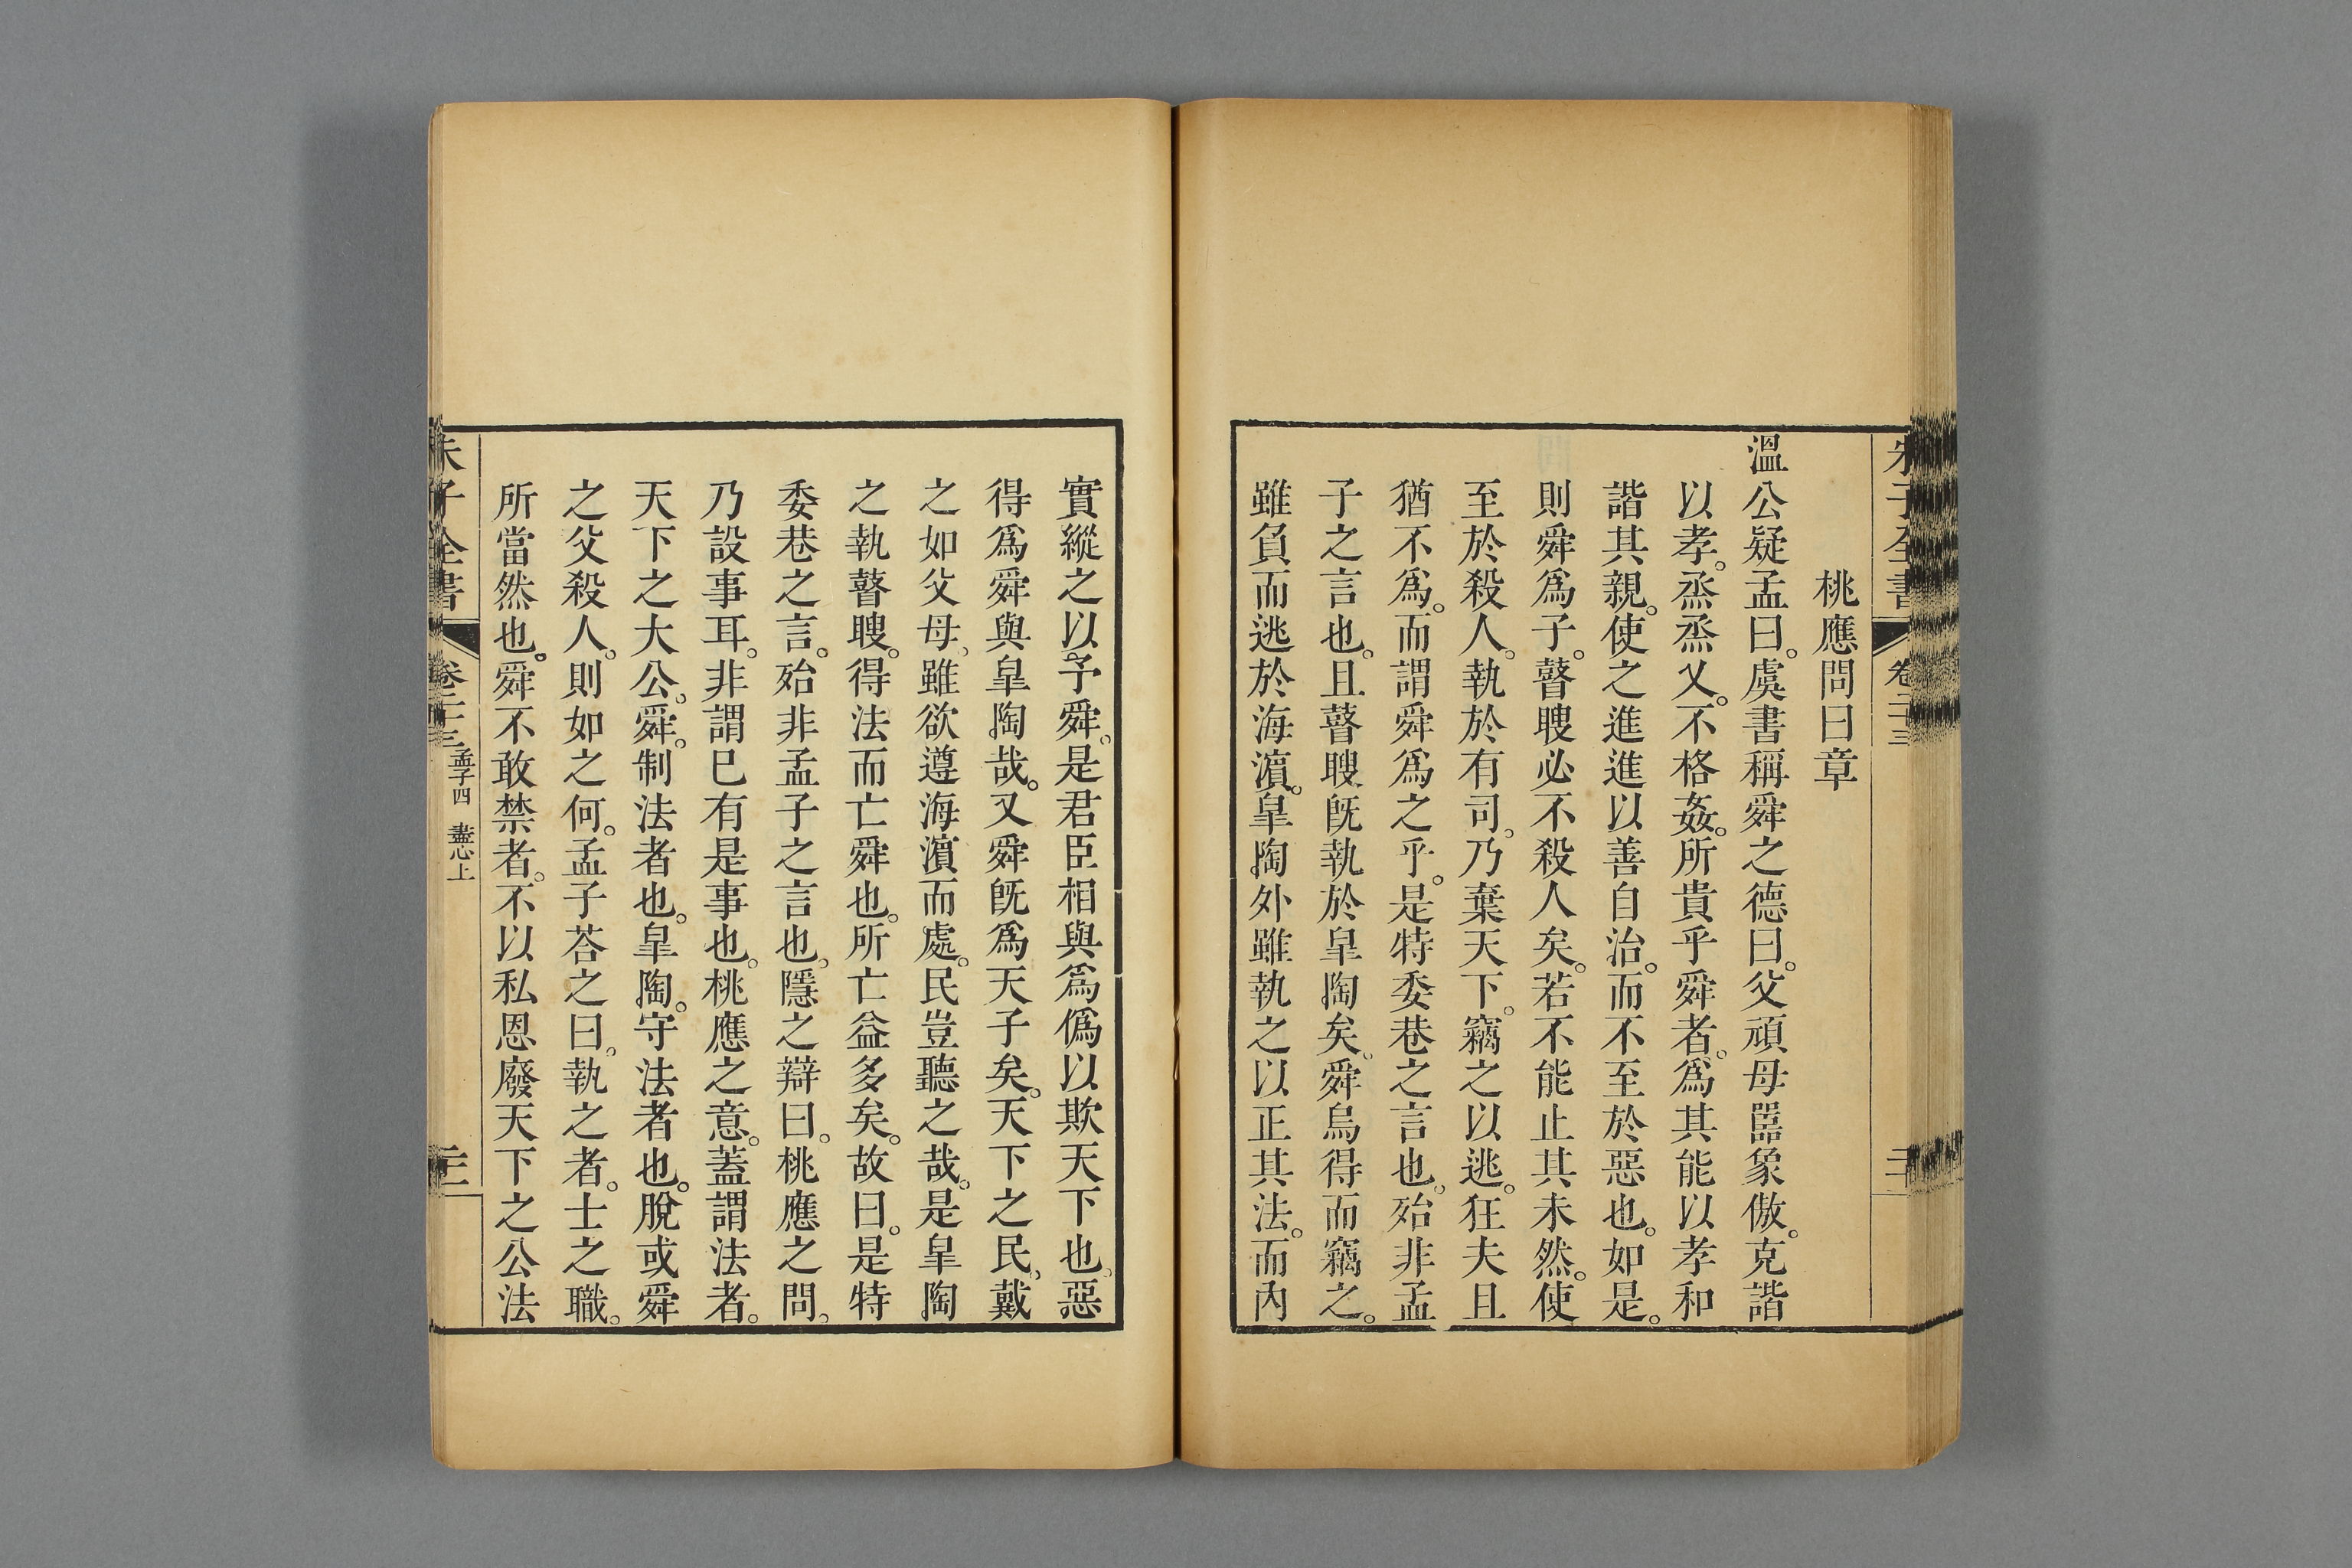 朱子全書
卷二十三
桃應問曰章
溫公疑孟曰。虞書稱舜之德曰。父頑母嚚象傲。克諧
以孝。烝烝乂。不格姦。所貴乎舜者。爲其能以孝和
諧其親。使之進進以善自治。而不至於惡也。如是。
則舜爲子。瞽瞍必不殺人矣。若不能止其未然。使
至於殺人。執於有司。乃棄天下。竊之以逃。狂夫且
猶不爲。而謂舜爲之乎。是特委巷之言也。殆非孟
子之言也。且瞽瞍旣執於皐陶矣。舜烏得而竊之。
雖負而逃於海濵。皐陶外雖執之以正其法。而內
實縱之以予舜。是君臣相與爲僞以欺天下也。惡
得爲舜與皐陶哉。又舜旣爲天子矣。天下之民。戴
之如父母。雖欲遵海濵而處。民豈聽之哉。是皐陶
之執瞽瞍。得法而亡舜也。所亡益多矣。故曰。是特
委巷之言。殆非孟子之言也。隱之辯曰。桃應之問。
乃設事耳。非謂已有是事也。桃應之意。蓋謂法者。
天下之大公。舜。制法者也。皐陶。守法者也。脫或舜
之父殺人。則如之何。孟子荅之曰。執之者。士之職。
所當然也。舜不敢禁者。不以私恩廢天下之公法
朱子全書
卷二十三
孟子四 盡心上